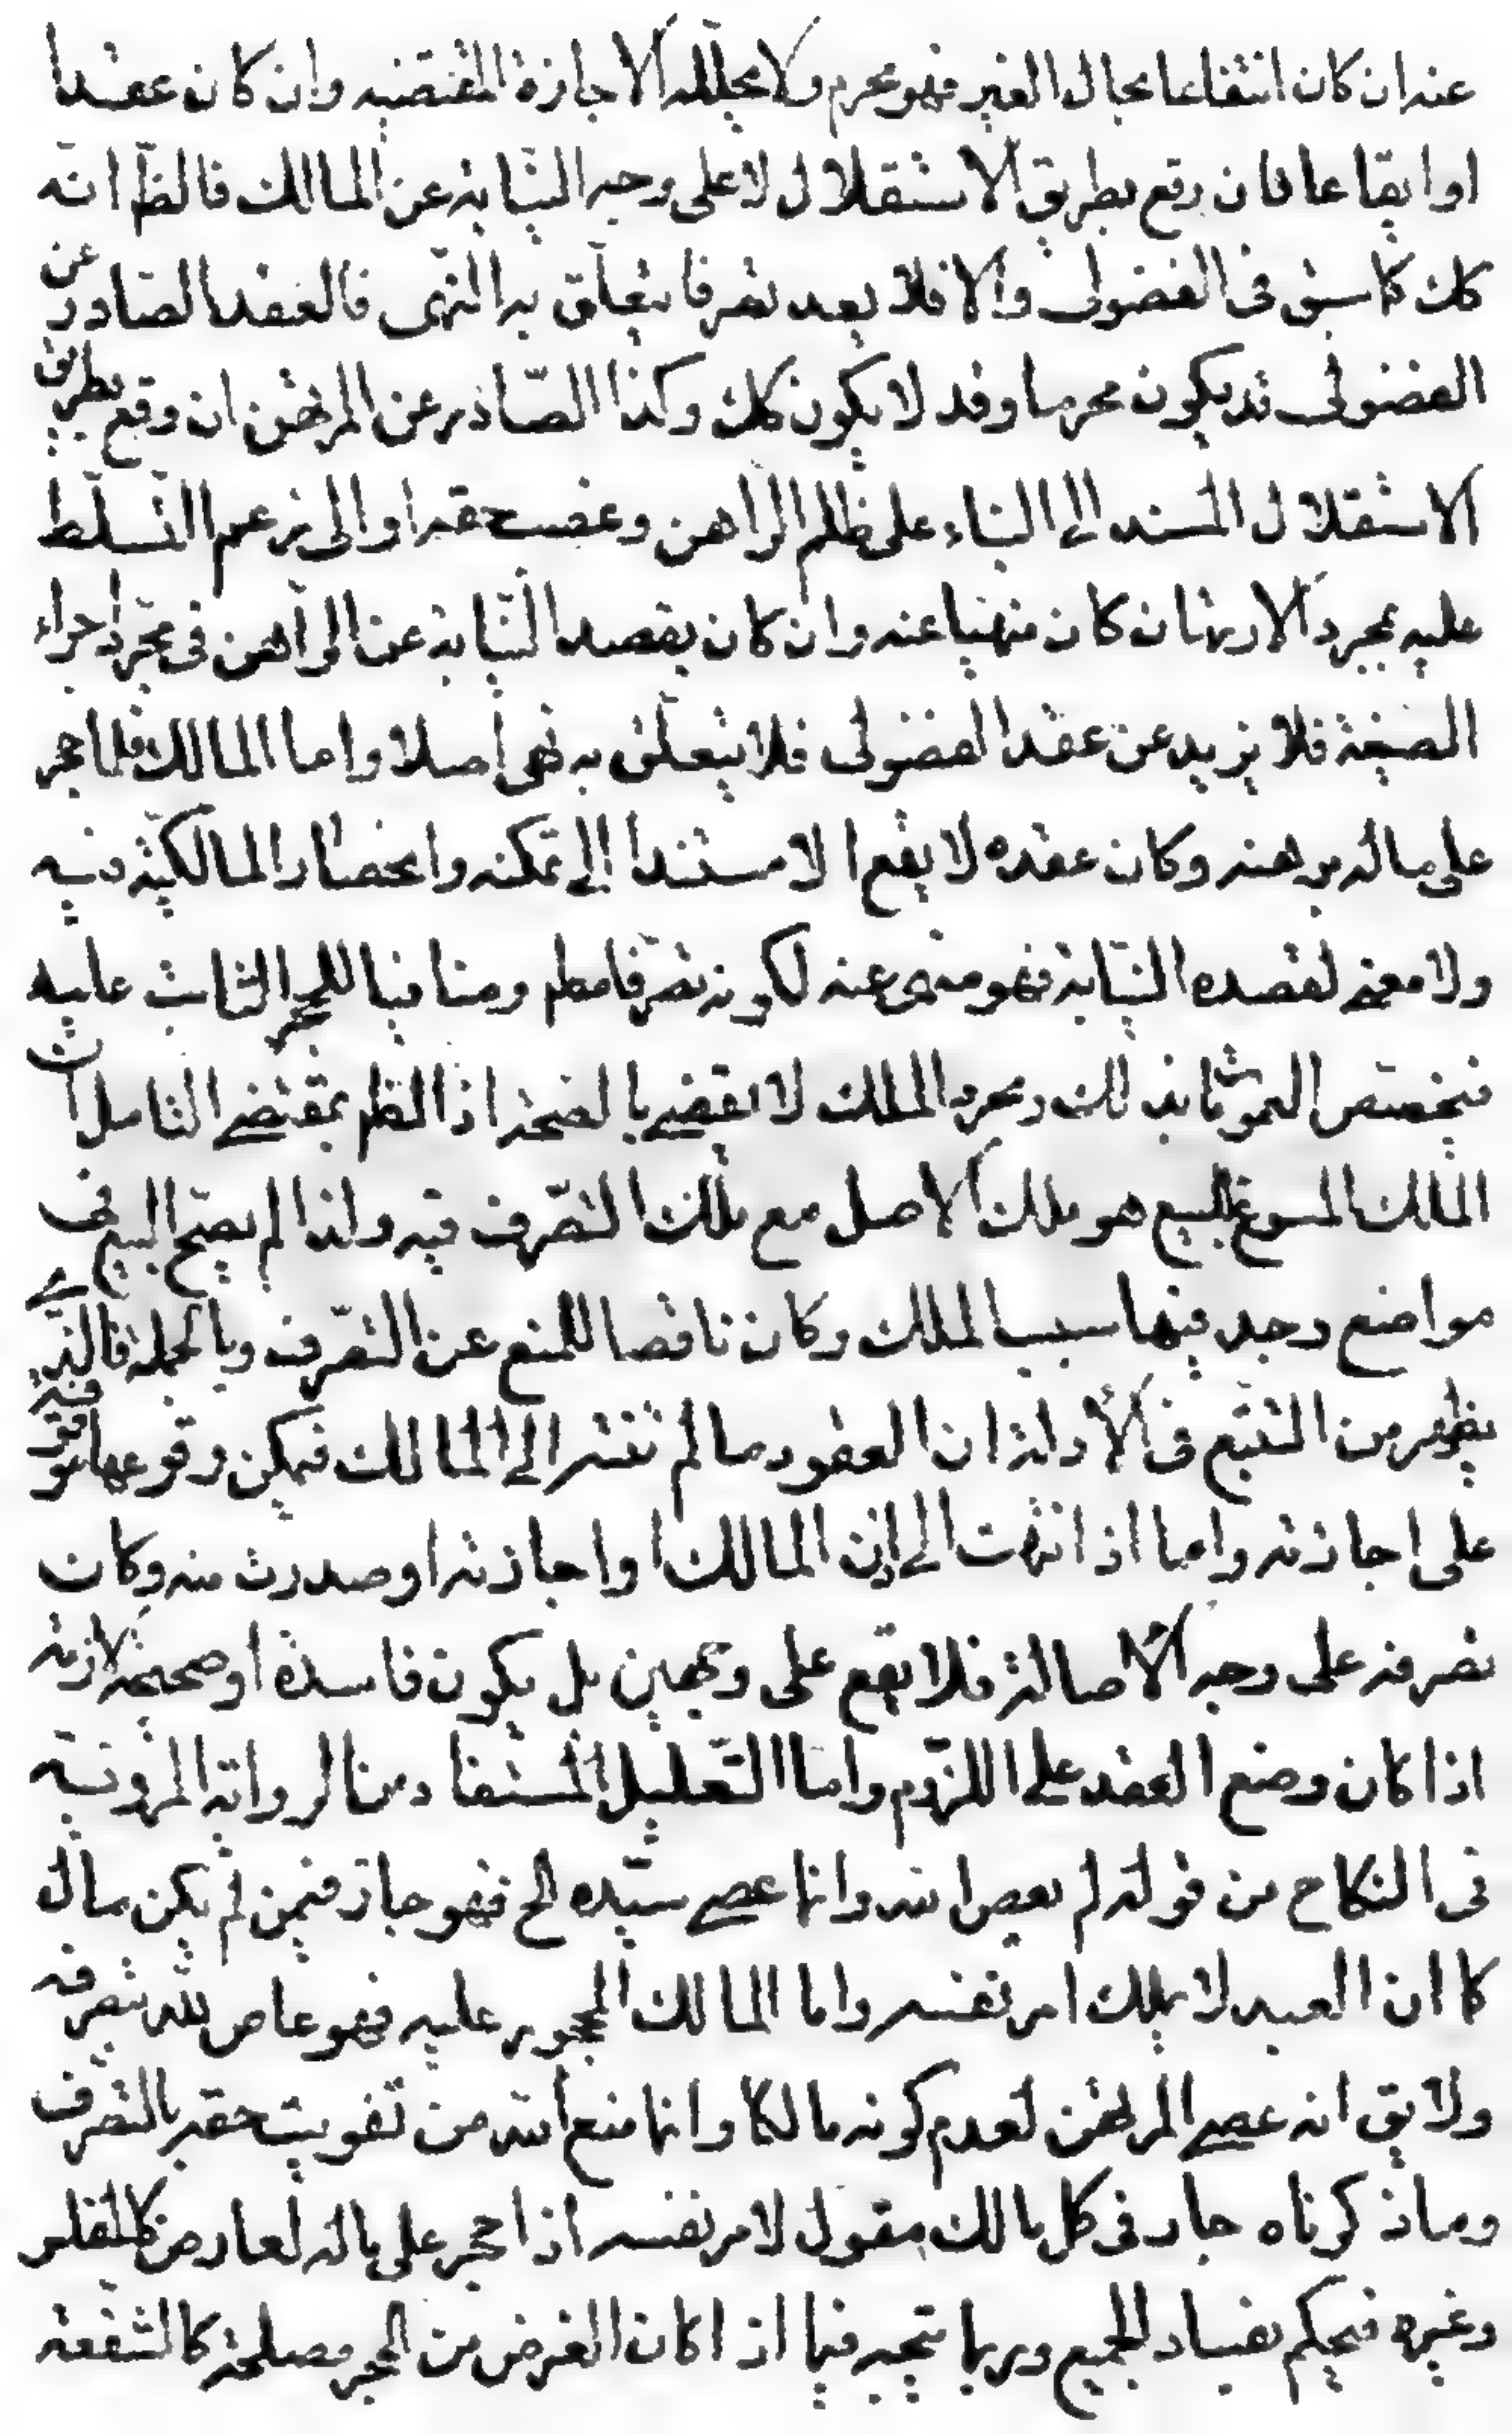 عنه ان كان انتفاعا بمال الغير فهو محرم ولا يحلله الاجازة المتعقبة وان كان عقدا
او ايقاعا فان وقع بطريق الاستقلال لا على وجه النيابة عن المالك فالظ انه
كك كما سبق فى الفضولى والا فلا يعد تصرفا يتعلق به النهى فالعقد الصادر عن
الفضولى قد يكون محرما وقد لا يكون كك وكذا الصادر عن المرتهن ان وقع بطريق
الاستقلال المستند الى البناء على ظلم الراهن وغصب حقه او الى زعم التسلط
عليه بمجرد الارتهان كان منهيا عنه وان كان بقصد النيابة عن الراهن فى مجرد اجراء
الصيغة فلا يزيد عن عقد الفضولى فلا يتعلق به نهى اصلا واما المالك فلما حجر
على ماله برهنه وكان عقده لا يقع الا مستندا الى تمكنه وانحصار المالكية فيه
ولا معنى لقصده النيابة فهو منهى عنه لكونه تصرفا مطم ومنافيا للحجر الثابت عليه
فيختص العمومات بذلك ومجرد الملك لا يقضى بالصحة اذ الظم بمقتضى التامل ان
الملك المسوغ للبيع هو ملك الاصل مع ملك التصرف فيه ولذا لم يصح البيع فى
مواضع وجد فيها سبب الملك وكان ناقصا للمنع عن التصرف وبالجملة فالذى
يظهر من التتبع فى الأدلة ان العقود ما لم تنته الى المالك فيمكن وقوعها موقوفة
على اجازته واما اذا انتهت الى اذن المالك او اجازته او صدرت منه وكان
تصرفه على وجه الاصالة فلا يقع على وجهين بل يكون فاسدة او صحيحة لازمة
اذا كان وضع العقد على اللزوم واما التعليل المستفاد من الرواية المروية
فى النكاح من قوله لم يعص الله وانما عصى سيده الخ فهو جار فيمن لم يكن مالك
كما ان العبد لا يملك امر نفسه واما المالك المحجور عليه فهو عاص لله بتصرفه
ولا يق انه عصى المرتهن لعدم كونه مالكا وانما منع الله من تفويت حقه بالتصرف
وما ذكرناه جار فى كل مالك مقول لامر نفسه اذا حجر على ماله لعارض كالفلس
وغيره فيحكم بفساد الجميع وربما يتجه فيما اذا كان الغرض من الحجر مصلحة كالشفعة